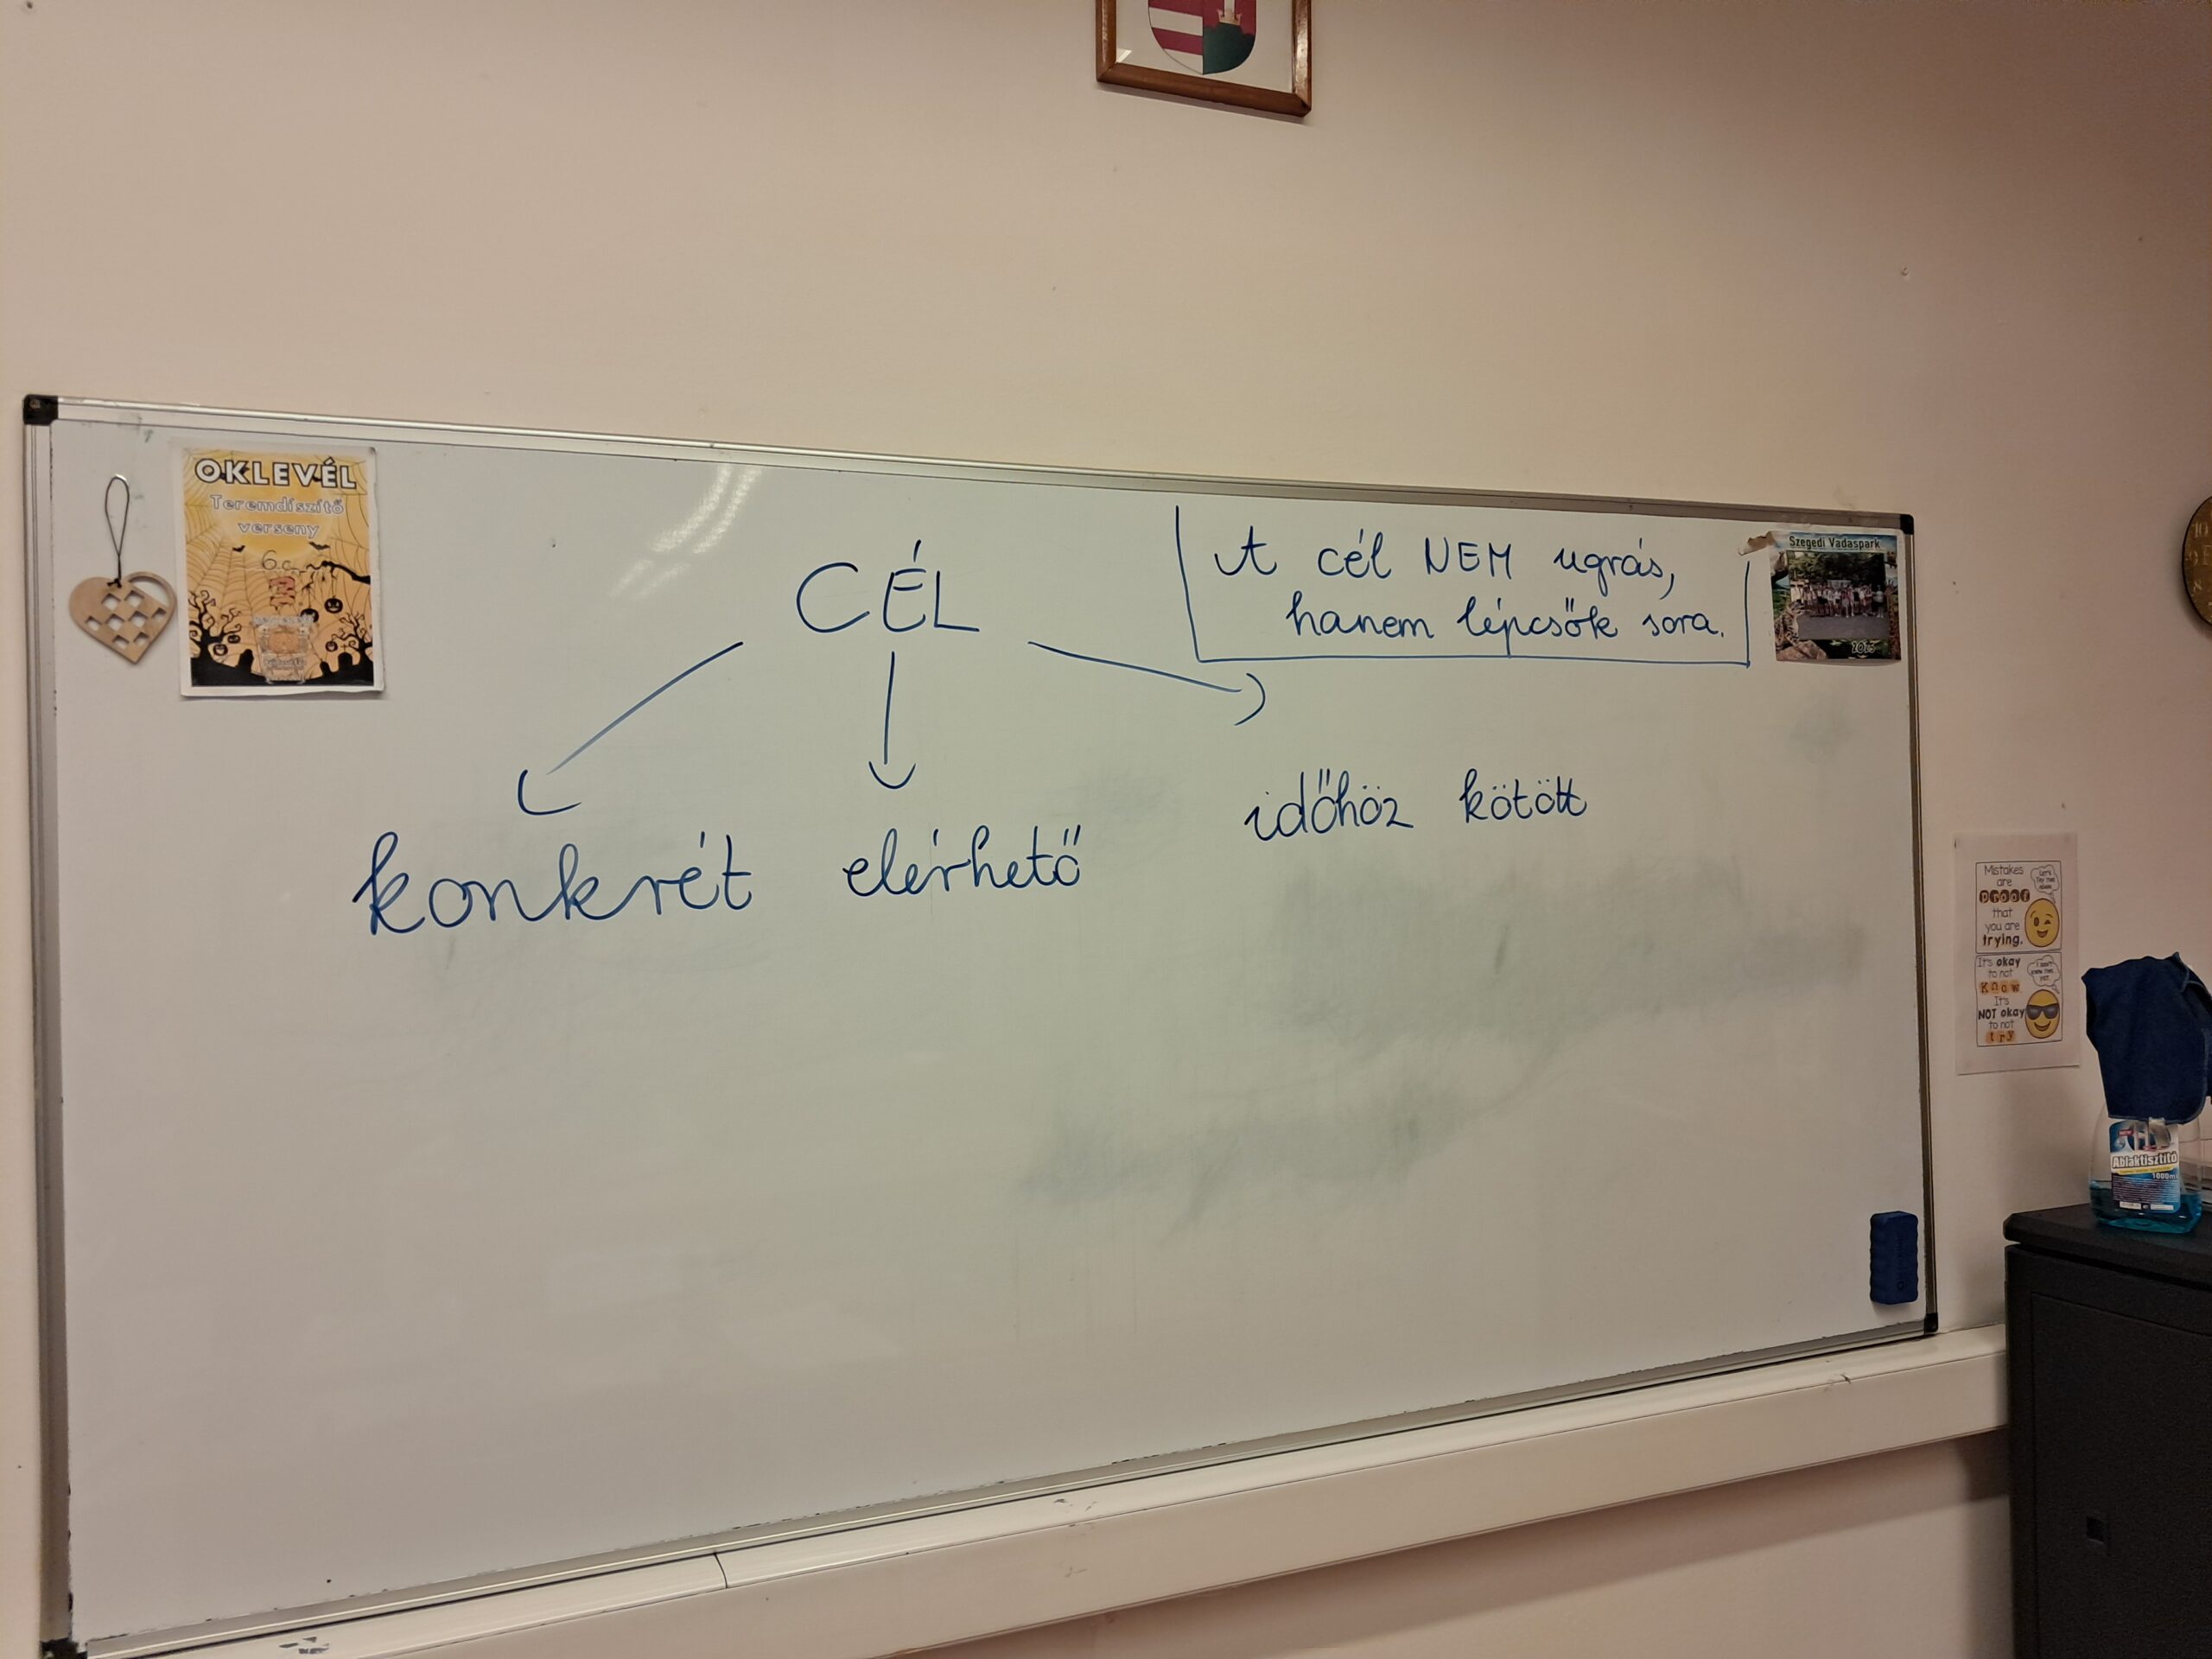 OKLEVÉL
Teremdíszítő
verseny
6.a
CÉL
A cél NEM ugrás,
hanem lépcsők sora.
Szegedi Vadaspark
2025
konkrét elérhető időhöz kötött
Mistakes
are
proof
that
you are
trying.
It's okay
to not
know
It's
NOT okay
to not
try
Ablaktisztító
1000ml
10